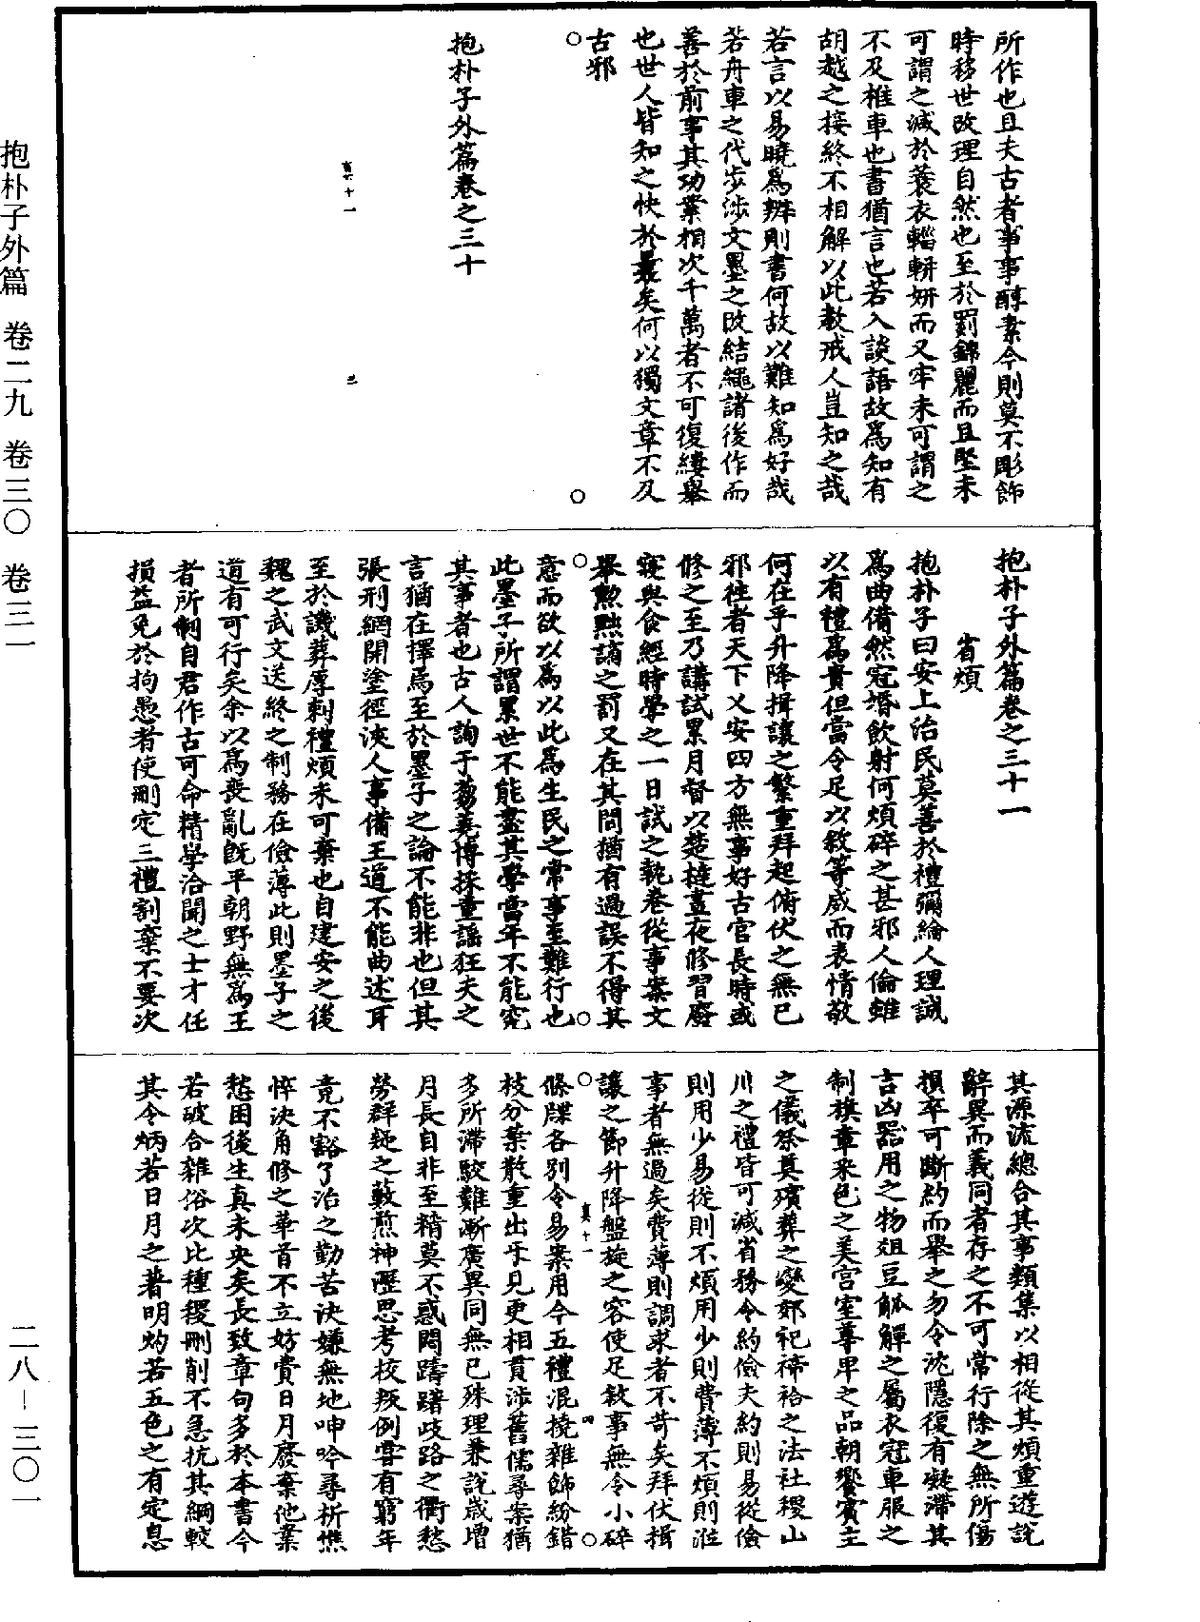 抱朴子外篇　卷二九　卷三〇　卷三一
二八—三〇一
所作也且夫古者事事醇素今則莫不彫飾
時移世改理自然也至於罽錦麗而且堅未
可謂之減於蓑衣輜軿妍而又牢未可謂之
不及椎車也書猶言也若入談語故為知有
胡越之接終不相解以此教戒人豈知之哉
若言以易曉為辨則書何故以難知為好哉
若舟車之代步涉文墨之改結繩諸後作而
善於前事其功業相次千萬者不可復縷舉
也世人皆知之快於曩矣何以獨文章不及
古邪
抱朴子外篇卷之三十
三
抱朴子外篇卷之三十一
省煩
抱朴子曰安上治民莫善於禮彌綸人理誠
為曲備然冠婚飲射何煩碎之甚邪人倫雖
以有禮為貴但當令足以敘等威而表情敬
何在乎升降揖讓之繁重拜起俯伏之無已
邪往者天下乂安四方無事好古官長時或
修之至乃講試累月督以楚撻晝夜修習廢
寢與食經時學之一日試之執卷從事案文
舉動黜謫之罰又在其間猶有過誤不得其
意而欲以為以此為生民之常事至難行也
此墨子所謂累世不能盡其學當年不能究
其事者也古人詢于芻蕘博採童謠狂夫之
言猶在擇焉至於墨子之論不能非也但其
張刑網開塗徑浹人事備王道不能曲述耳
至於譏葬厚刺禮煩未可棄也自建安之後
魏之武文送終之制務在儉薄此則墨子之
道有可行矣余以為喪亂既平朝野無為王
者所制自君作古可命精學洽聞之士才任
損益免於拘愚者使刪定三禮割棄不要次
其源流總合其事類集以相從其煩重遊說
辭異而義同者存之不可常行除之無所傷
損卒可斷約而舉之勿令沈隱復有凝滯其
吉凶器用之物俎豆觚觶之屬衣冠車服之
制旗章采色之美宮室尊卑之品朝饗賓主
之儀祭奠殯葬之變郊祀禘祫之法社稷山
川之禮皆可減省務令約儉夫約則易從儉
則用少易從則不煩用少則費薄不煩則涖
事者無過矣費薄則調求者不苛矣拜伏揖
讓之節升降盤旋之容使足敘事無令小碎
四
條牒各別令易案用今五禮混撓雜飾紛錯
枝分葉散重出互見更相貫涉舊儒尋案猶
多所滯駮難漸廣異同無已殊理兼說歲增
月長自非至精莫不惑悶躊躇歧路之衢愁
勞群疑之藪煎神瀝思考校叛例嘗有窮年
竟不豁了治之勤苦決嫌無地呻吟尋析憔
悴決角修之華首不立妨費日月廢棄他業
愁困後生真未央矣長致章句多於本書今
若破合雜俗次比種稷刪削不急抗其綱較
其令炳若日月之著明灼若五色之有定息